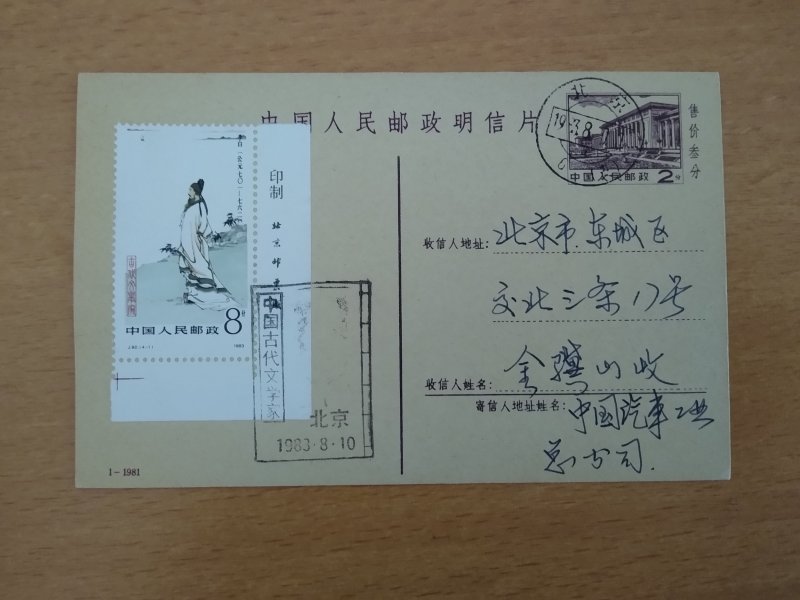 中国人民邮政明信片
售价叁分
中国人民邮政 2分
北京
李白(公元七〇一—七六二
中国人民邮政 8分
J.92.(4-1) 1983
印制
北京邮票
中国古代文学家
北京
1983·8·10
收信人地址:北京市.东城区
交北三条17号
收信人姓名:金 山收
寄信人地址姓名:中国汽车工业
总公司.
1-1981